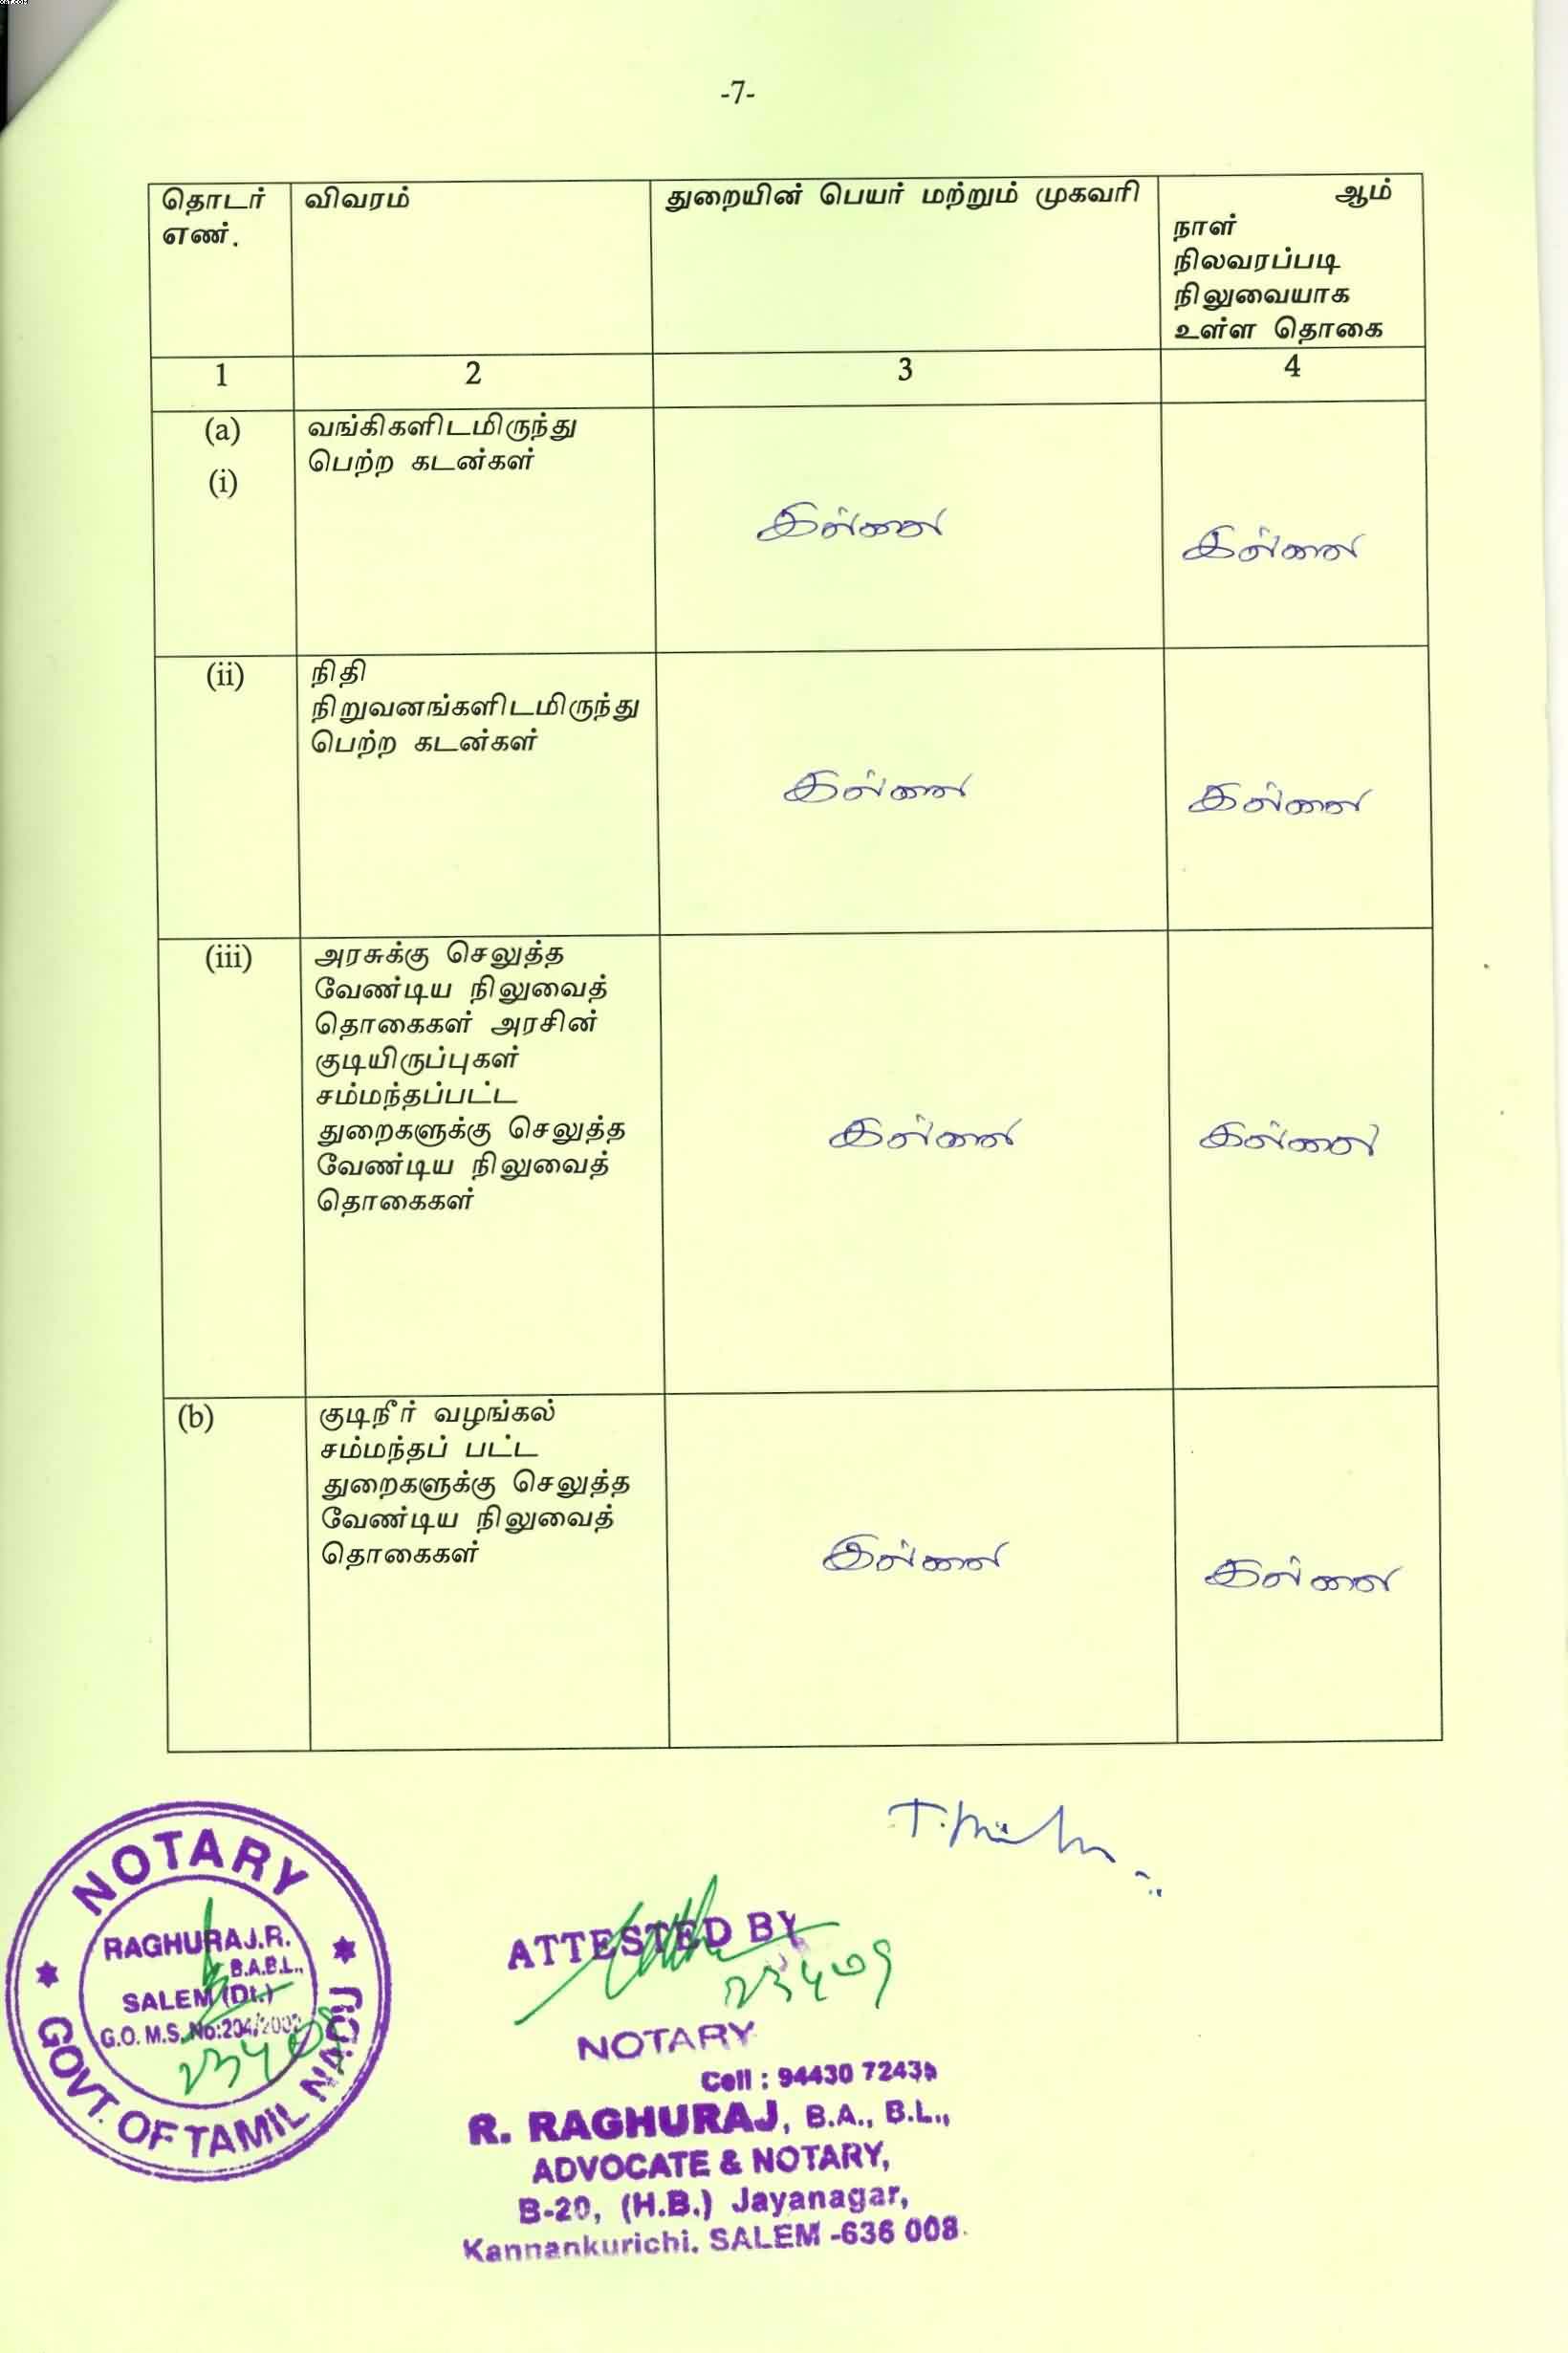 -7-
தொடர்
எண்.
விவரம்
துறையின் பெயர் மற்றும் முகவரி
ஆம்
நாள்
நிலவரப்படி
நிலுவையாக
உள்ள தொகை
1
2
3
4
(a)
(i)
வங்கிகளிடமிருந்து
பெற்ற கடன்கள்
இல்லை
இல்லை
(ii)
நிதி
நிறுவனங்களிடமிருந்து
பெற்ற கடன்கள்
இல்லை
இல்லை
(iii)
அரசுக்கு செலுத்த
வேண்டிய நிலுவைத்
தொகைகள் அரசின்
குடியிருப்புகள்
சம்மந்தப்பட்ட
துறைகளுக்கு செலுத்த
வேண்டிய நிலுவைத்
தொகைகள்
இல்லை
இல்லை
(b)
குடிநீர் வழங்கல்
சம்மந்தப் பட்ட
துறைகளுக்கு செலுத்த
வேண்டிய நிலுவைத்
தொகைகள்
இல்லை
இல்லை
NOTARY
RAGHURAJ.R.
B.A.B.L.,
SALEM (Dt.)
G.O. M.S. No:204/2002
GOVT. OF TAMIL NADU
ATTESTED BY
NOTARY
Cell : 94430 72435
R. RAGHURAJ, B.A., B.L.,
ADVOCATE & NOTARY,
B-20, (H.B.) Jayanagar,
Kannankurichi. SALEM -636 008.